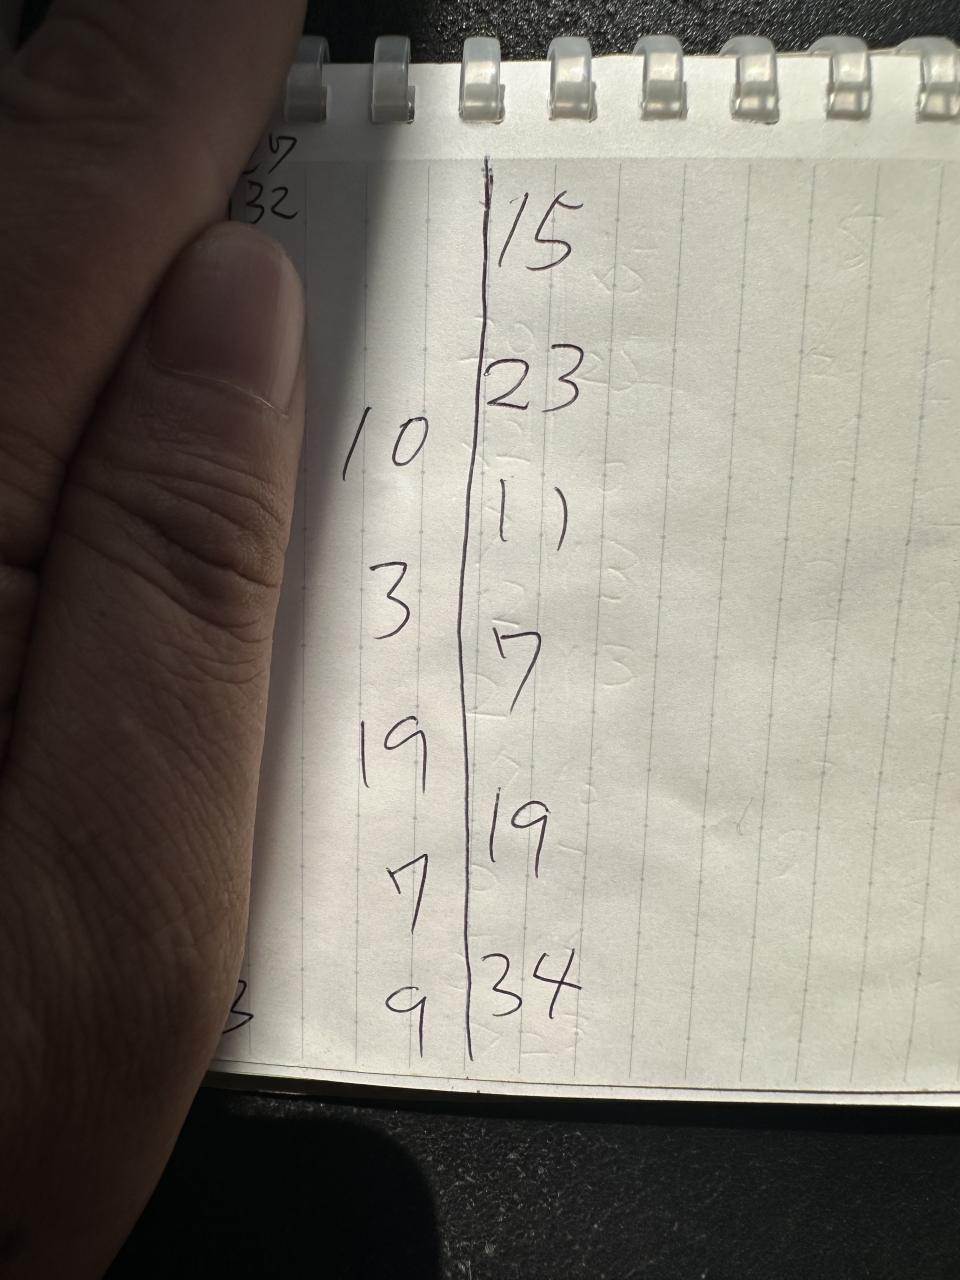 32
15
23
10
11
3
7
19
19
7
34
9
3